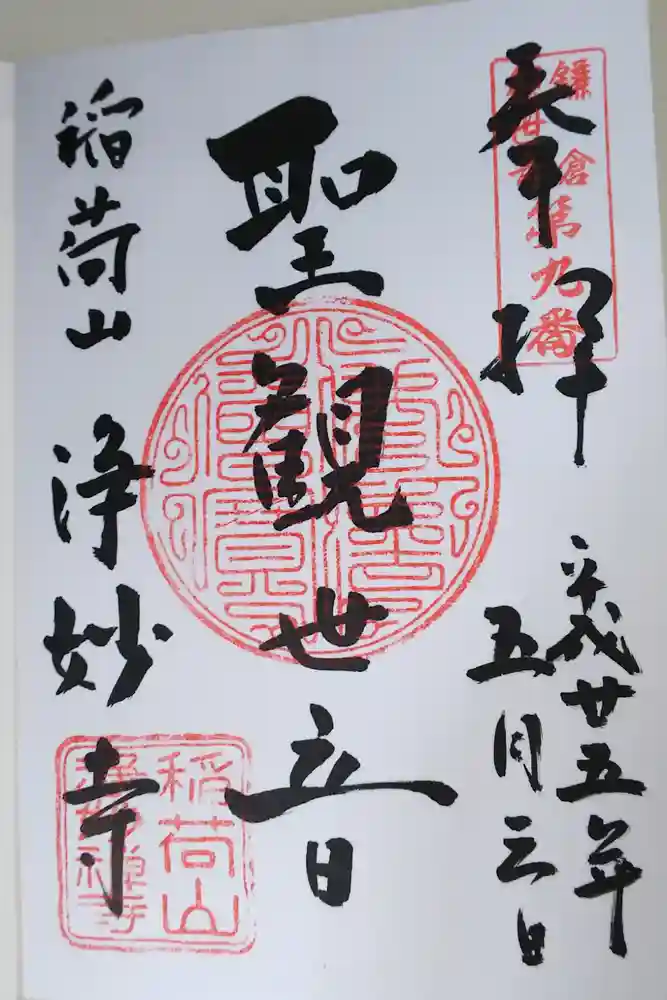 奉拝
鎌倉
第九番
平成廿五年
五月三日
聖観世音
稲荷山 浄妙寺
稲荷山
浄妙禅寺